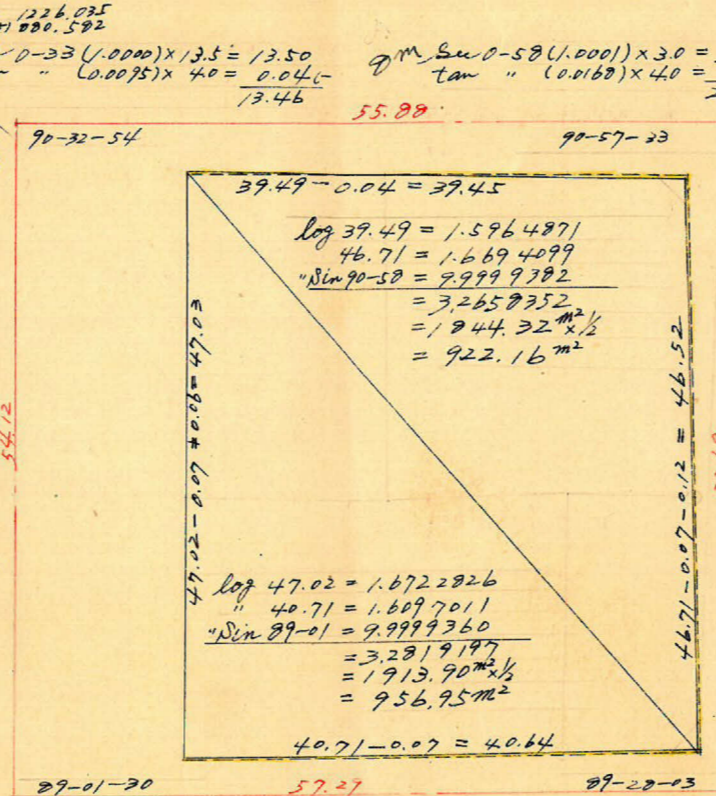 1226.035
080.582
0-33 (1.0000) × 13.5 = 13.50
" (0.0095) × 4.0 = 0.04 (-
13.46
qm Sec 0-58 (1.0001) × 3.0 =
tan " (0.0168) × 4.0 =
55.88
90-32-54
90-57-33
39.49 - 0.04 = 39.45
log 39.49 = 1.5964871
46.71 = 1.6694099
" Sin 90-58 = 9.9999382
= 3.2658352
= 1844.32 m² × ½
= 922.16 m²
54.12
47.02 - 0.07 + 0.06 = 47.03
46.71 - 0.07 - 0.12 = 46.52
log 47.02 = 1.6722826
" 40.71 = 1.6097011
" Sin 89-01 = 9.9999360
= 3.2819197
= 1913.90 m² × ½
= 956.95 m²
40.71 - 0.07 = 40.64
89-01-30
57.29
89-28-03